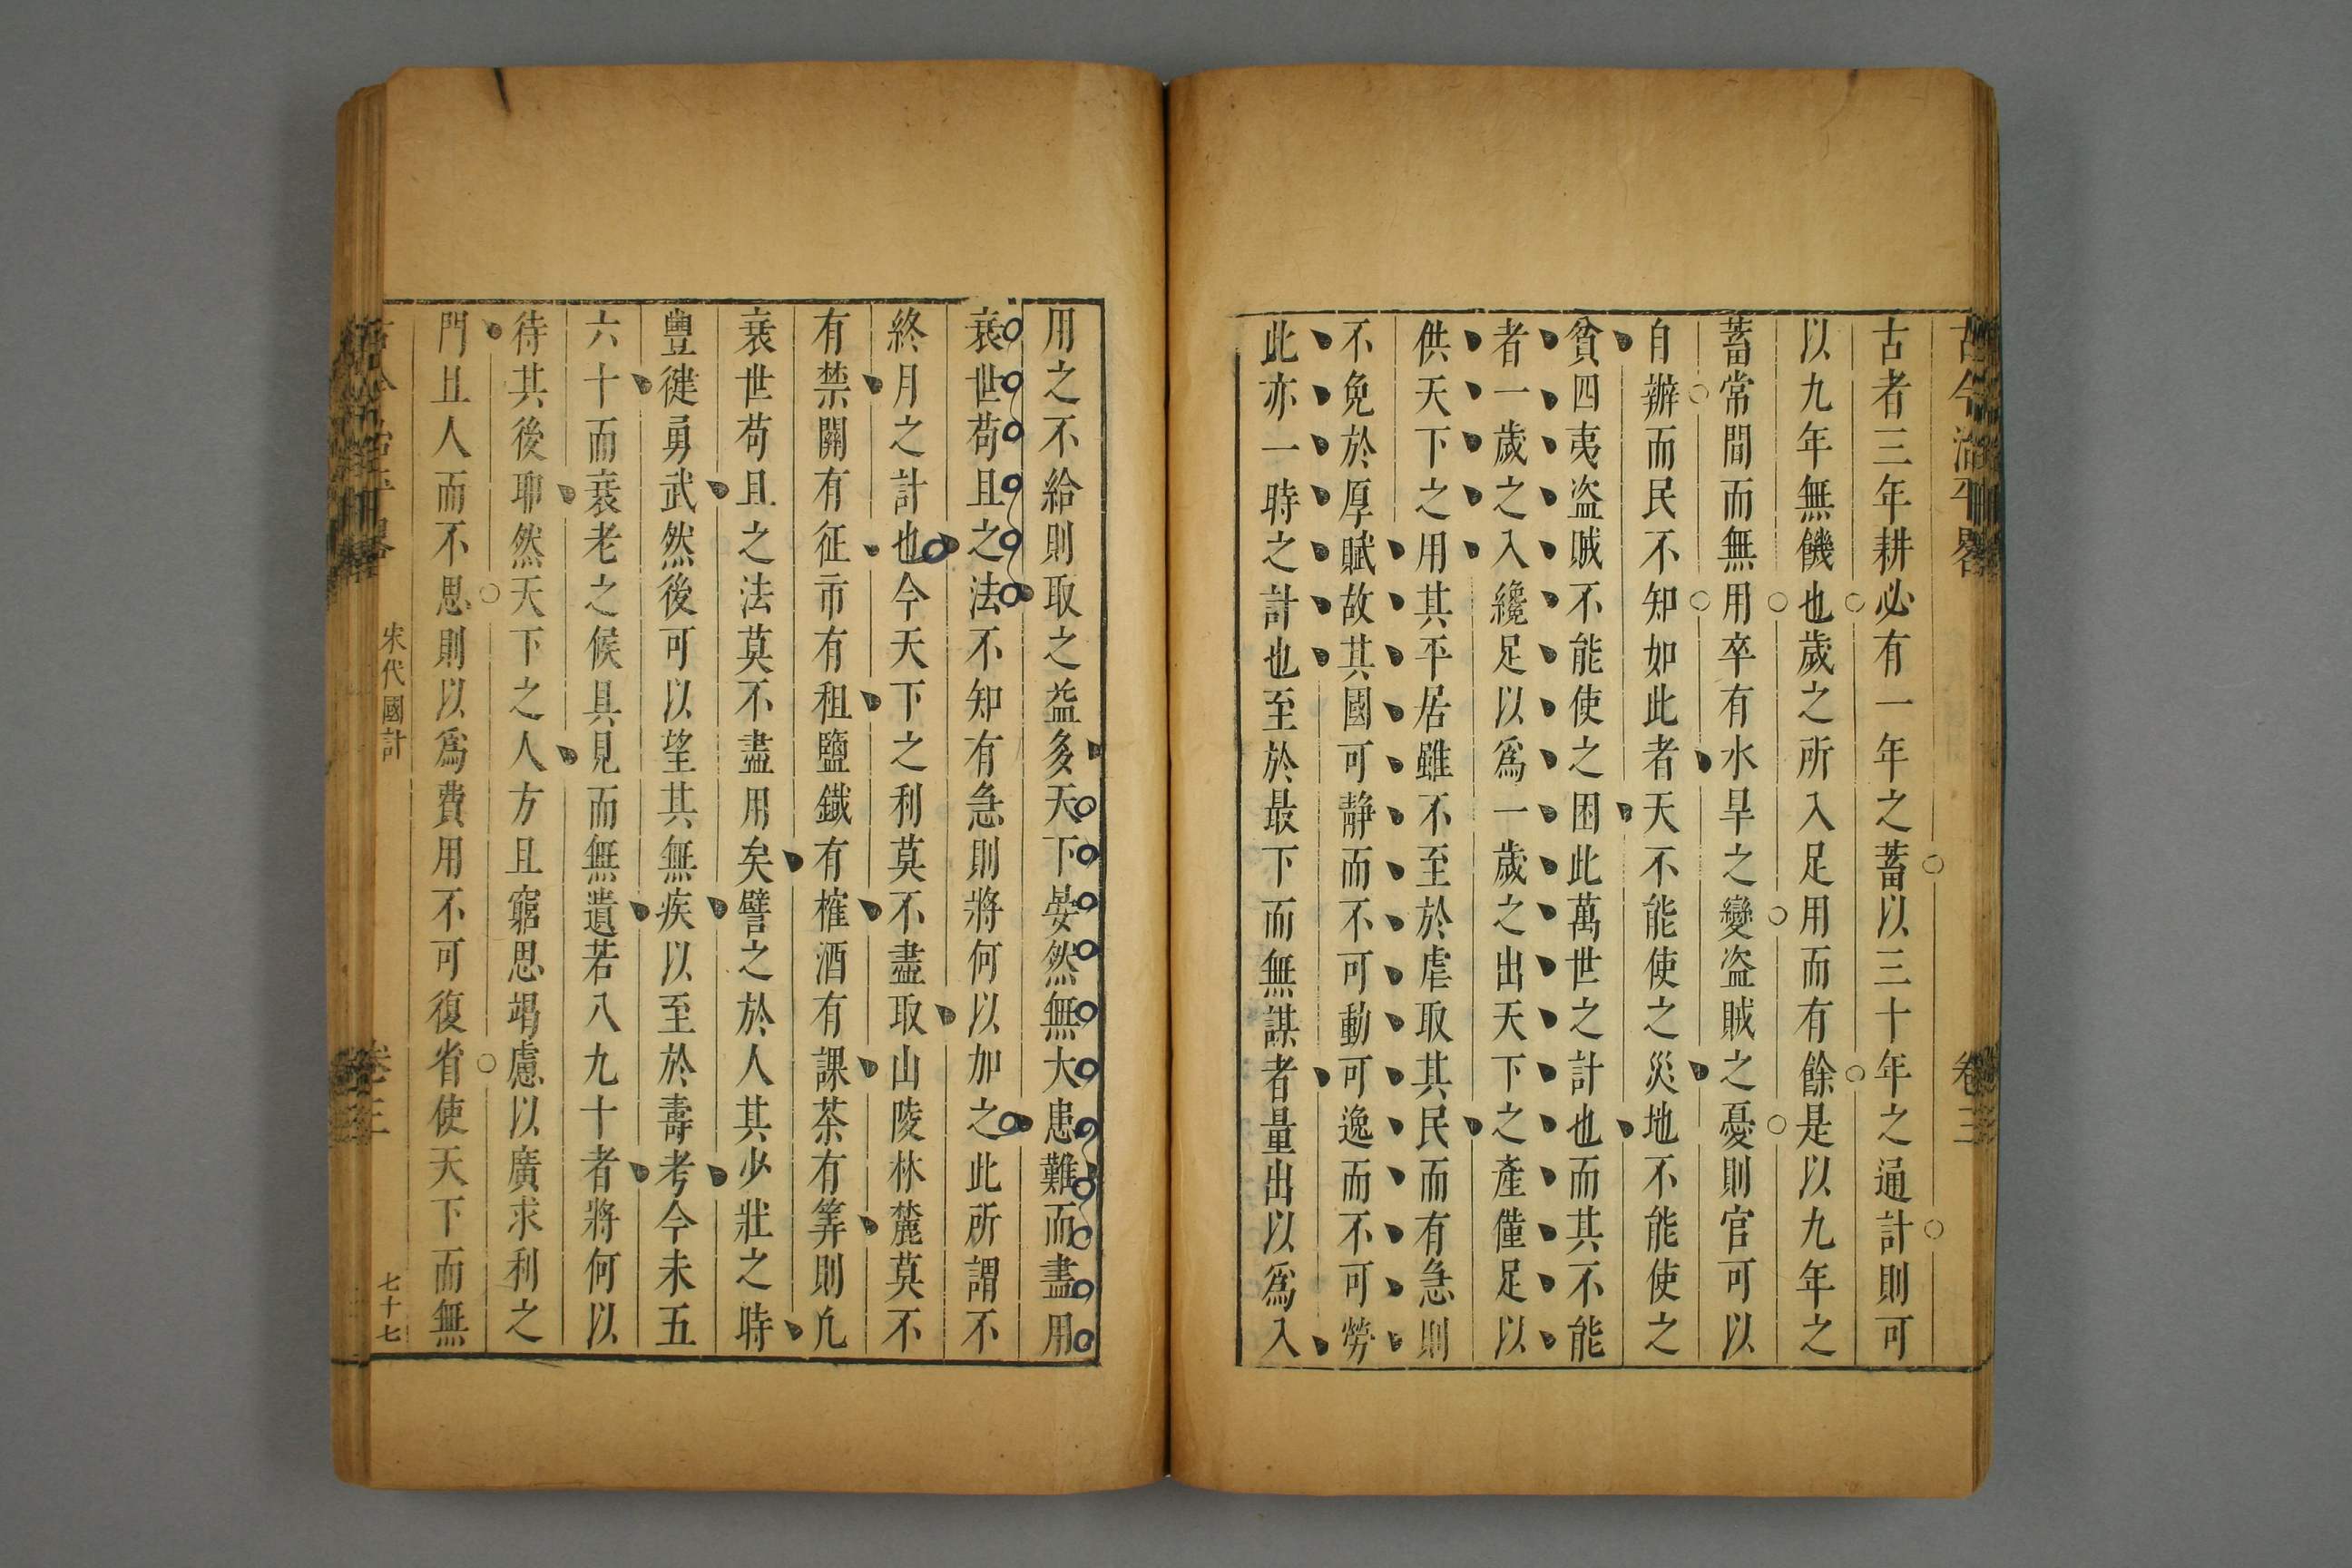 古今治平畧
卷三
古者三年耕必有一年之蓄以三十年之通計則可
以九年無饑也歲之所入足用而有餘是以九年之
蓄常間而無用卒有水旱之變盗賊之憂則官可以
自辦而民不知如此者天不能使之災地不能使之
貧四夷盗賊不能使之困此萬世之計也而其不能
者一歲之入纔足以爲一歲之出天下之產僅足以
供天下之用其平居雖不至於虐取其民而有急則
不免於厚賦故其國可靜而不可動可逸而不可勞
此亦一時之計也至於最下而無謀者量出以爲入
用之不給則取之益多天下晏然無大患難而盡用
衰世苟且之法不知有急則將何以加之此所謂不
終月之計也今天下之利莫不盡取山陵林麓莫不
有禁關有征市有租鹽鐵有榷酒有課茶有筭則凢
衰世苟且之法莫不盡用矣譬之於人其少壯之時
豐徤勇武然後可以望其無疾以至於壽考今未五
六十而衰老之候具見而無遺若八九十者將何以
待其後耶然天下之人方且窮思竭慮以廣求利之
門且人而不思則以爲費用不可復省使天下而無
宋代國計
卷三
七十七